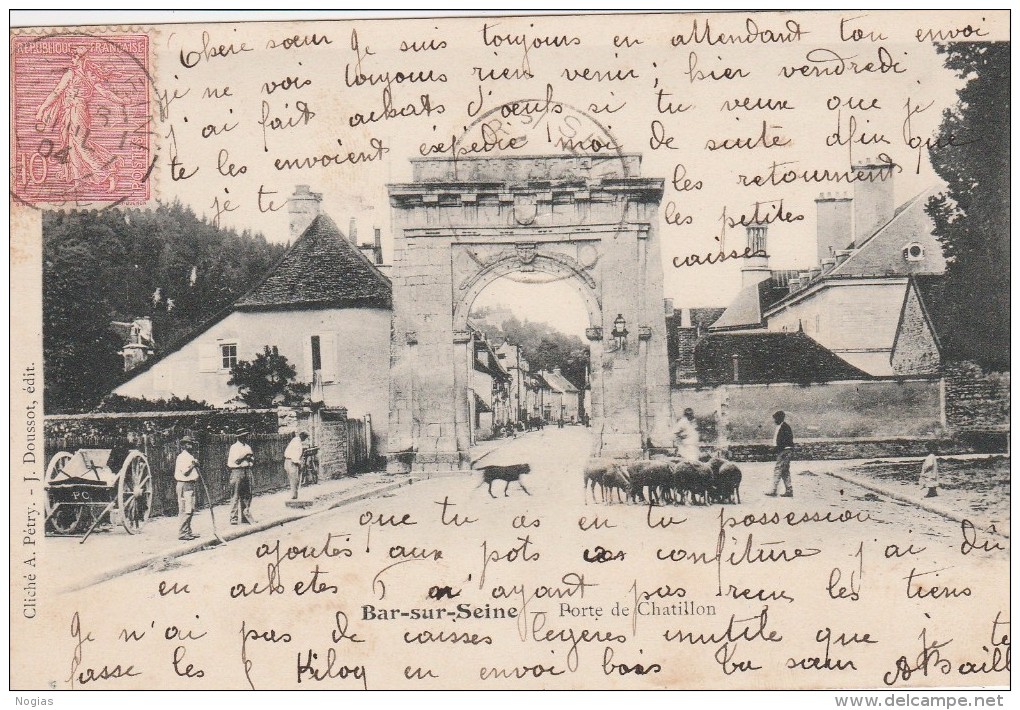 RÉPUBLIQUE FRANÇAISE
10
POSTES
04
Chère sœur Je suis toujours en attendant ton envoi
je ne vois toujours rien venir ; hier vendredi
j'ai fait achats d'œufs si tu veux que je
te les envoient éxpédie moi de suite afin que
je te les retournent
les petites
caisses
PC
que tu as en ta possession
ajoutés aux pots confiture j'ai dû
en achetes n'ayant pas reçu les tiens
Bar-sur-Seine — Porte de Chatillon
Je n'ai pas de caisses legères inutile que je te
passe les Kilog en envoi bois Ta sœur
Cliché A. Pétry. - J. Doussot, édit.
Nogias
© www.delcampe.net